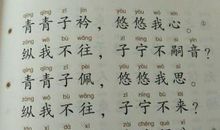 qīng qīng zǐ jīn yōu yōu wǒ xīn
青青子衿，悠悠我心。①
zòng wǒ bù wǎng zǐ nìng bù sì yīn
纵我不往，子宁不嗣音？
qīng qīng zǐ pèi yōu yōu wǒ sī
青青子佩，悠悠我思。
zòng wǒ bù wǎng zǐ nìng bù lái
纵我不往，子宁不来？